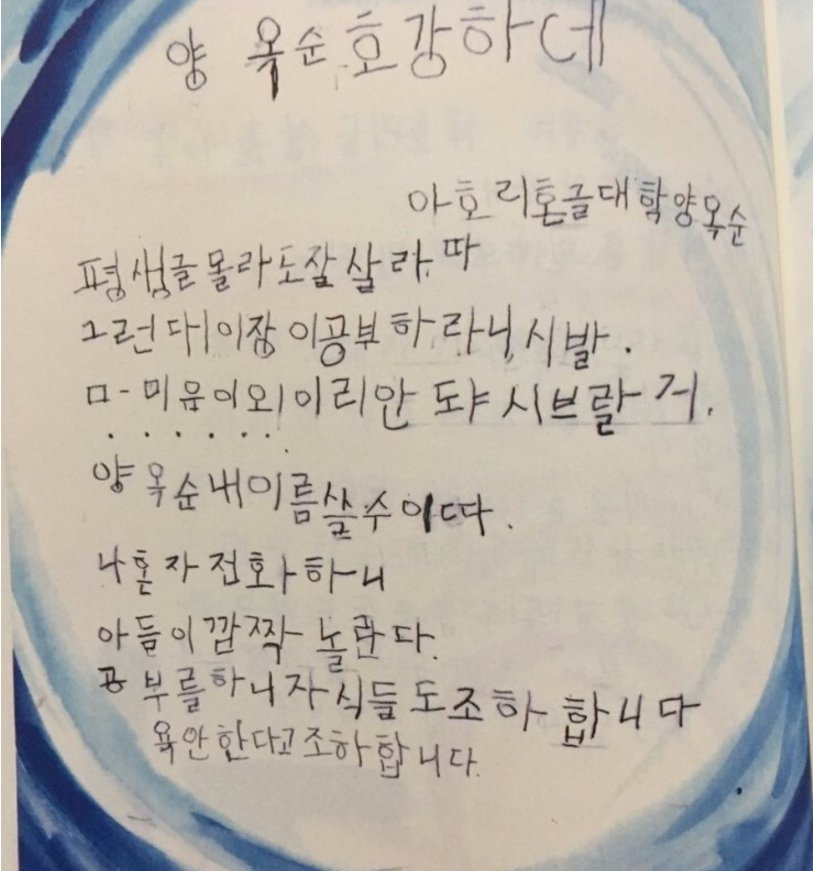 양 옥순 호강하데
아호리혼글대학양옥순
평생글몰라도잘살라.따
그런대이장이공부하라니,시발.
ㅁ-미움이외이리안 도야시브랄거.
......
양옥순내이름쓸수이따.
나혼자전화하니
아들이깜짝놀란다.
공부를하니자식들도조하합니다
욕안한다고조하합니다.